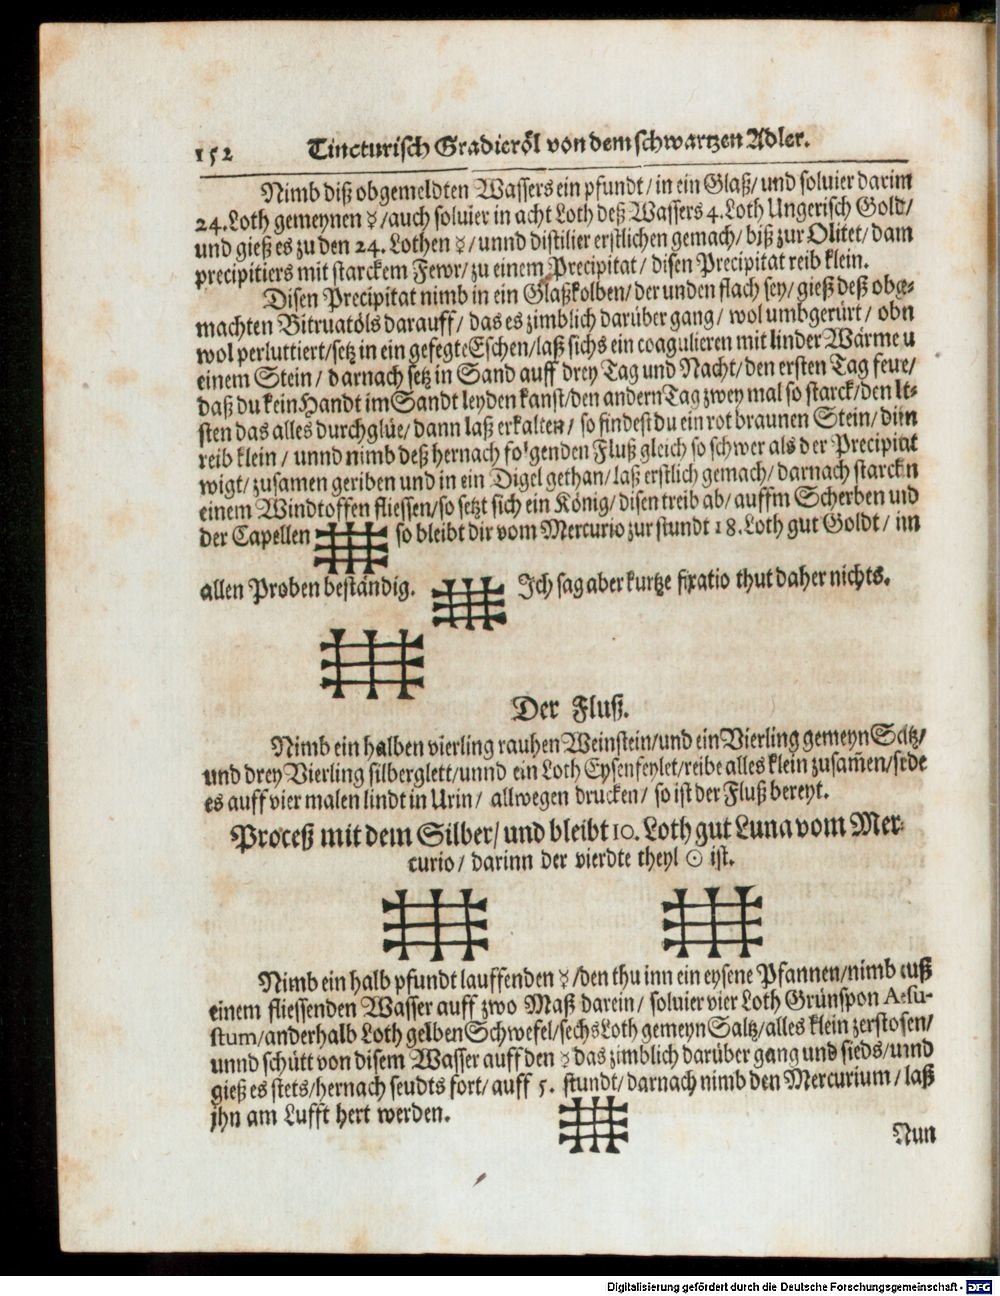 152 Tincturisch Gradieröl von dem schwartzen Adler.
Nimb diß obgemeldten Wassers ein pfundt / in ein Glaß / und soluier darinn
24. Loth gemeynen ☿ / auch soluier in acht Loth deß Wassers 4. Loth Ungerisch Gold /
und gieß es zu den 24. Lothen ☿ / unnd distilier erstlichen gemach / biß zur Olitet / dann
precipitiers mit starckem Fewr / zu einem Precipitat / disen Precipitat reib klein.
Disen Precipitat nimb in ein Glaßkolben / der unden flach sey / gieß deß obge-
machten Vitruatöls darauff / das es zimblich darüber gang / wol umbgerürt / obn
wol perluttiert / setz in ein gefegte Eschen / laß sichs ein coagulieren mit linder Wärme u
einem Stein / darnach setz in Sand auff drey Tag und Nacht / den ersten Tag feure /
daß du kein Handt im Sandt leyden kanst / den andern Tag zwey mal so starck / den lt-
sten das alles durchglüe / dann laß erkalten / so findest du ein rot braunen Stein / diin
reib klein / unnd nimb deß hernach folgenden Fluß gleich so schwer als der Precipitat
wigt / zusamen geriben und in ein Digel gethan / laß erstlich gemach / darnach starck n
einem Windtoffen fliessen / so setzt sich ein König / disen treib ab / auffm Scherben und
der Capellen so bleibt dir vom Mercurio zur stundt 18. Loth gut Goldt / inn
allen Proben beständig. Ich sag aber kurtze fixatio thut daher nichts.
Der Fluß.
Nimb ein halben vierling rauhen Weinstein / und ein Vierling gemeyn Saltz /
und drey Vierling silberglett / unnd ein Loth Eysenfeylet / reibe alles klein zusam̄en / side
es auff vier malen lindt in Urin / allwegen drucken / so ist der Fluß bereyt.
Proceß mit dem Silber / und bleibt 10. Loth gut Luna vom Mer-
curio / darinn der vierdte theyl ☉ ist.
Nimb ein halb pfundt lauffenden ☿ / den thu inn ein eysene Pfannen / nimb auß
einem fliessenden Wasser auff zwo Maß darein / soluier vier Loth Grünspon Aesu-
stum / anderhalb Loth gelben Schwefel / sechs Loth gemeyn Saltz / alles klein zerstosen /
unnd schütt von disem Wasser auff den ☿ das zimblich darüber gang und sieds / unnd
gieß es stets / hernach seudts fort / auff 5. stundt / darnach nimb den Mercurium / laß
jhn am Lufft hert werden.
Nun
Digitalisierung gefördert durch die Deutsche Forschungsgemeinschaft - DFG